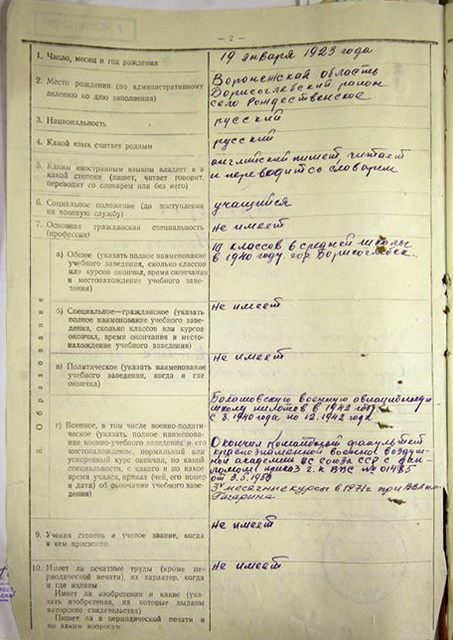 — 2 —
1. Число, месяц и год рождения
19 января 1923 года
2. Место рождения (по административному
делению ко дню заполнения)
Воронежская область
Борисоглебский район
село Рождественское
3. Национальность
русский
4. Какой язык считает родным
русский
5. Каким иностранным языком владеет и в
какой степени (пишет, читает говорит,
переводит со словарем или без него)
английский пишет, читает
и переводит со словарем
6. Социальное положение (до поступления
на военную службу)
учащийся
7. Основная гражданская специальность
(профессия)
не имеет
8. Образование
а) Общее (указать полное наименование
учебного заведения, сколько классов
или курсов окончил, время окончания
и местонахождение учебного заведения)
10 классов 6 средней школы
в 1940 году гор. Борисоглебск.
б) Специальное—гражданское (указать
полное наименование учебного заве-
дения, сколько классов или курсов
окончил, время окончания и место-
нахождение учебного заведения)
не имеет
в) Политическое (указать наименование
учебного заведения, когда и где
окончил)
не имеет
г) Военное, в том числе военно-политиче-
ческое (указать полное наименова-
ние военно-учебного заведения и его
местонахождение, нормальный или
ускоренный курс окончил, по какой
специальности, с какого и по какое
время учился, приказ (чей, его номер
и дата) об окончании учебного заве-
дения)
военную авиационную
школу пилотов в 1942 году
с 3.1940 года по 12.1942 года
Окончил командный факультет
краснознаменной военно воздуш-
ной академии ВС союза ССР с дип-
ломом
от 3.5.1953
месячные курсы в 1971 г при ВВА им.
Гагарина
9. Ученая степень и ученое звание, когда
и кем присвоено
не имеет
10. Имеет ли печатные труды (кроме пе-
риодической печати), их характер, когда
и где изданы
Имеет ли изобретения и какие (ука-
зать изобретения, на которые выданы
авторские свидетельства)
Пишет ли в периодической печати и
по каким вопросам
не имеет